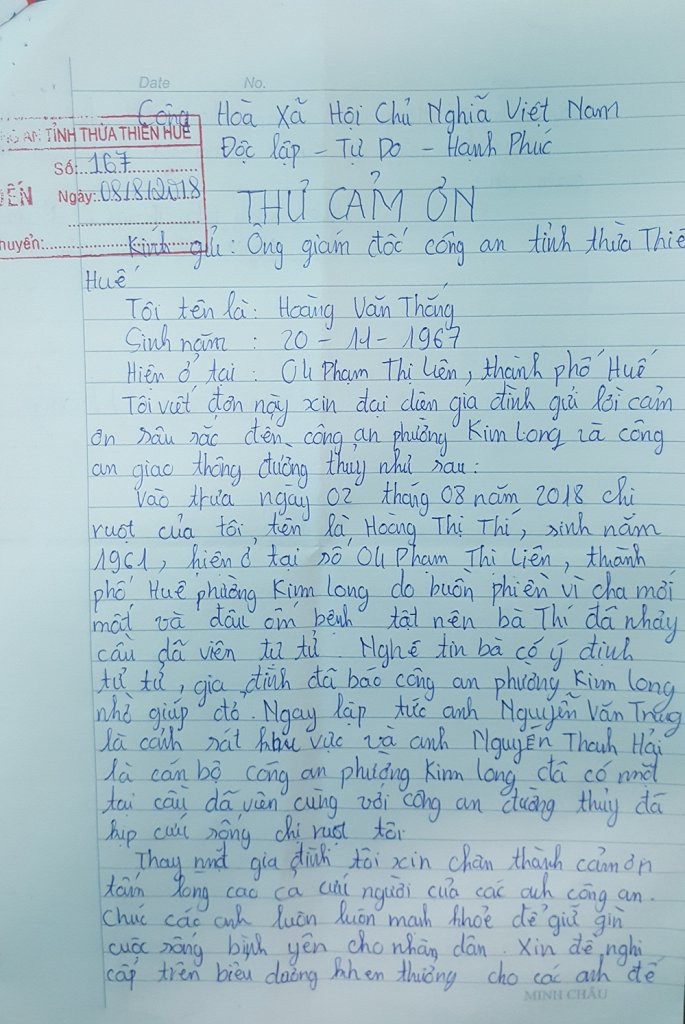 Date No.
Cộng Hoà Xã Hội Chủ Nghĩa Việt Nam
AN TỈNH THỪA THIÊN HUẾ
Độc lập - Tự Do - Hạnh Phúc
Số: 167
ĐẾN Ngày: 08/8/2018
THƯ CẢM ƠN
huyển:
Kính gửi: Ông giám đốc công an tỉnh thừa Thiê
Huế
Tôi tên là: Hoàng Văn Thắng
Sinh năm : 20 - 11 - 1967
Hiện ở tại : 04 Phạm Thị Liên, thành phố Huế
Tôi viết đơn này xin đại diện gia đình gửi lời cảm
ơn sâu sắc đến công an phường Kim Long và công
an giao thông đường thuỷ như sau:
Vào trưa ngày 02 tháng 08 năm 2018 chị
ruột của tôi tên là Hoàng Thị Thí, sinh năm
1961, hiện ở tại số 04 Phạm Thị Liên, thành
phố Huế phường Kim Long do buồn phiền vì cha mới
mất và đau ốm bệnh tật nên bà Thí đã nhảy
cầu dã viên tự tử. Nghe tin bà có ý định
tự tử, gia đình đã báo công an phường Kim Long
nhờ giúp đỡ. Ngay lập tức anh Nguyễn Văn
là cảnh sát khu vực và anh Nguyễn Thanh Hải
là cán bộ công an phường Kim Long đã có mặt
tại cầu dã viên cùng với công an đường thủy đã
kịp cứu sống chị ruột tôi
Thay mặt gia đình tôi xin chân thành cảm ơn
tấm lòng cao cả cứu người của các anh công an.
Chúc các anh luôn luôn mạnh khỏe để giữ gìn
cuộc sống bình yên cho nhân dân. Xin đề nghị
cấp trên biểu dương khen thưởng cho các anh để
MINH CHÂU